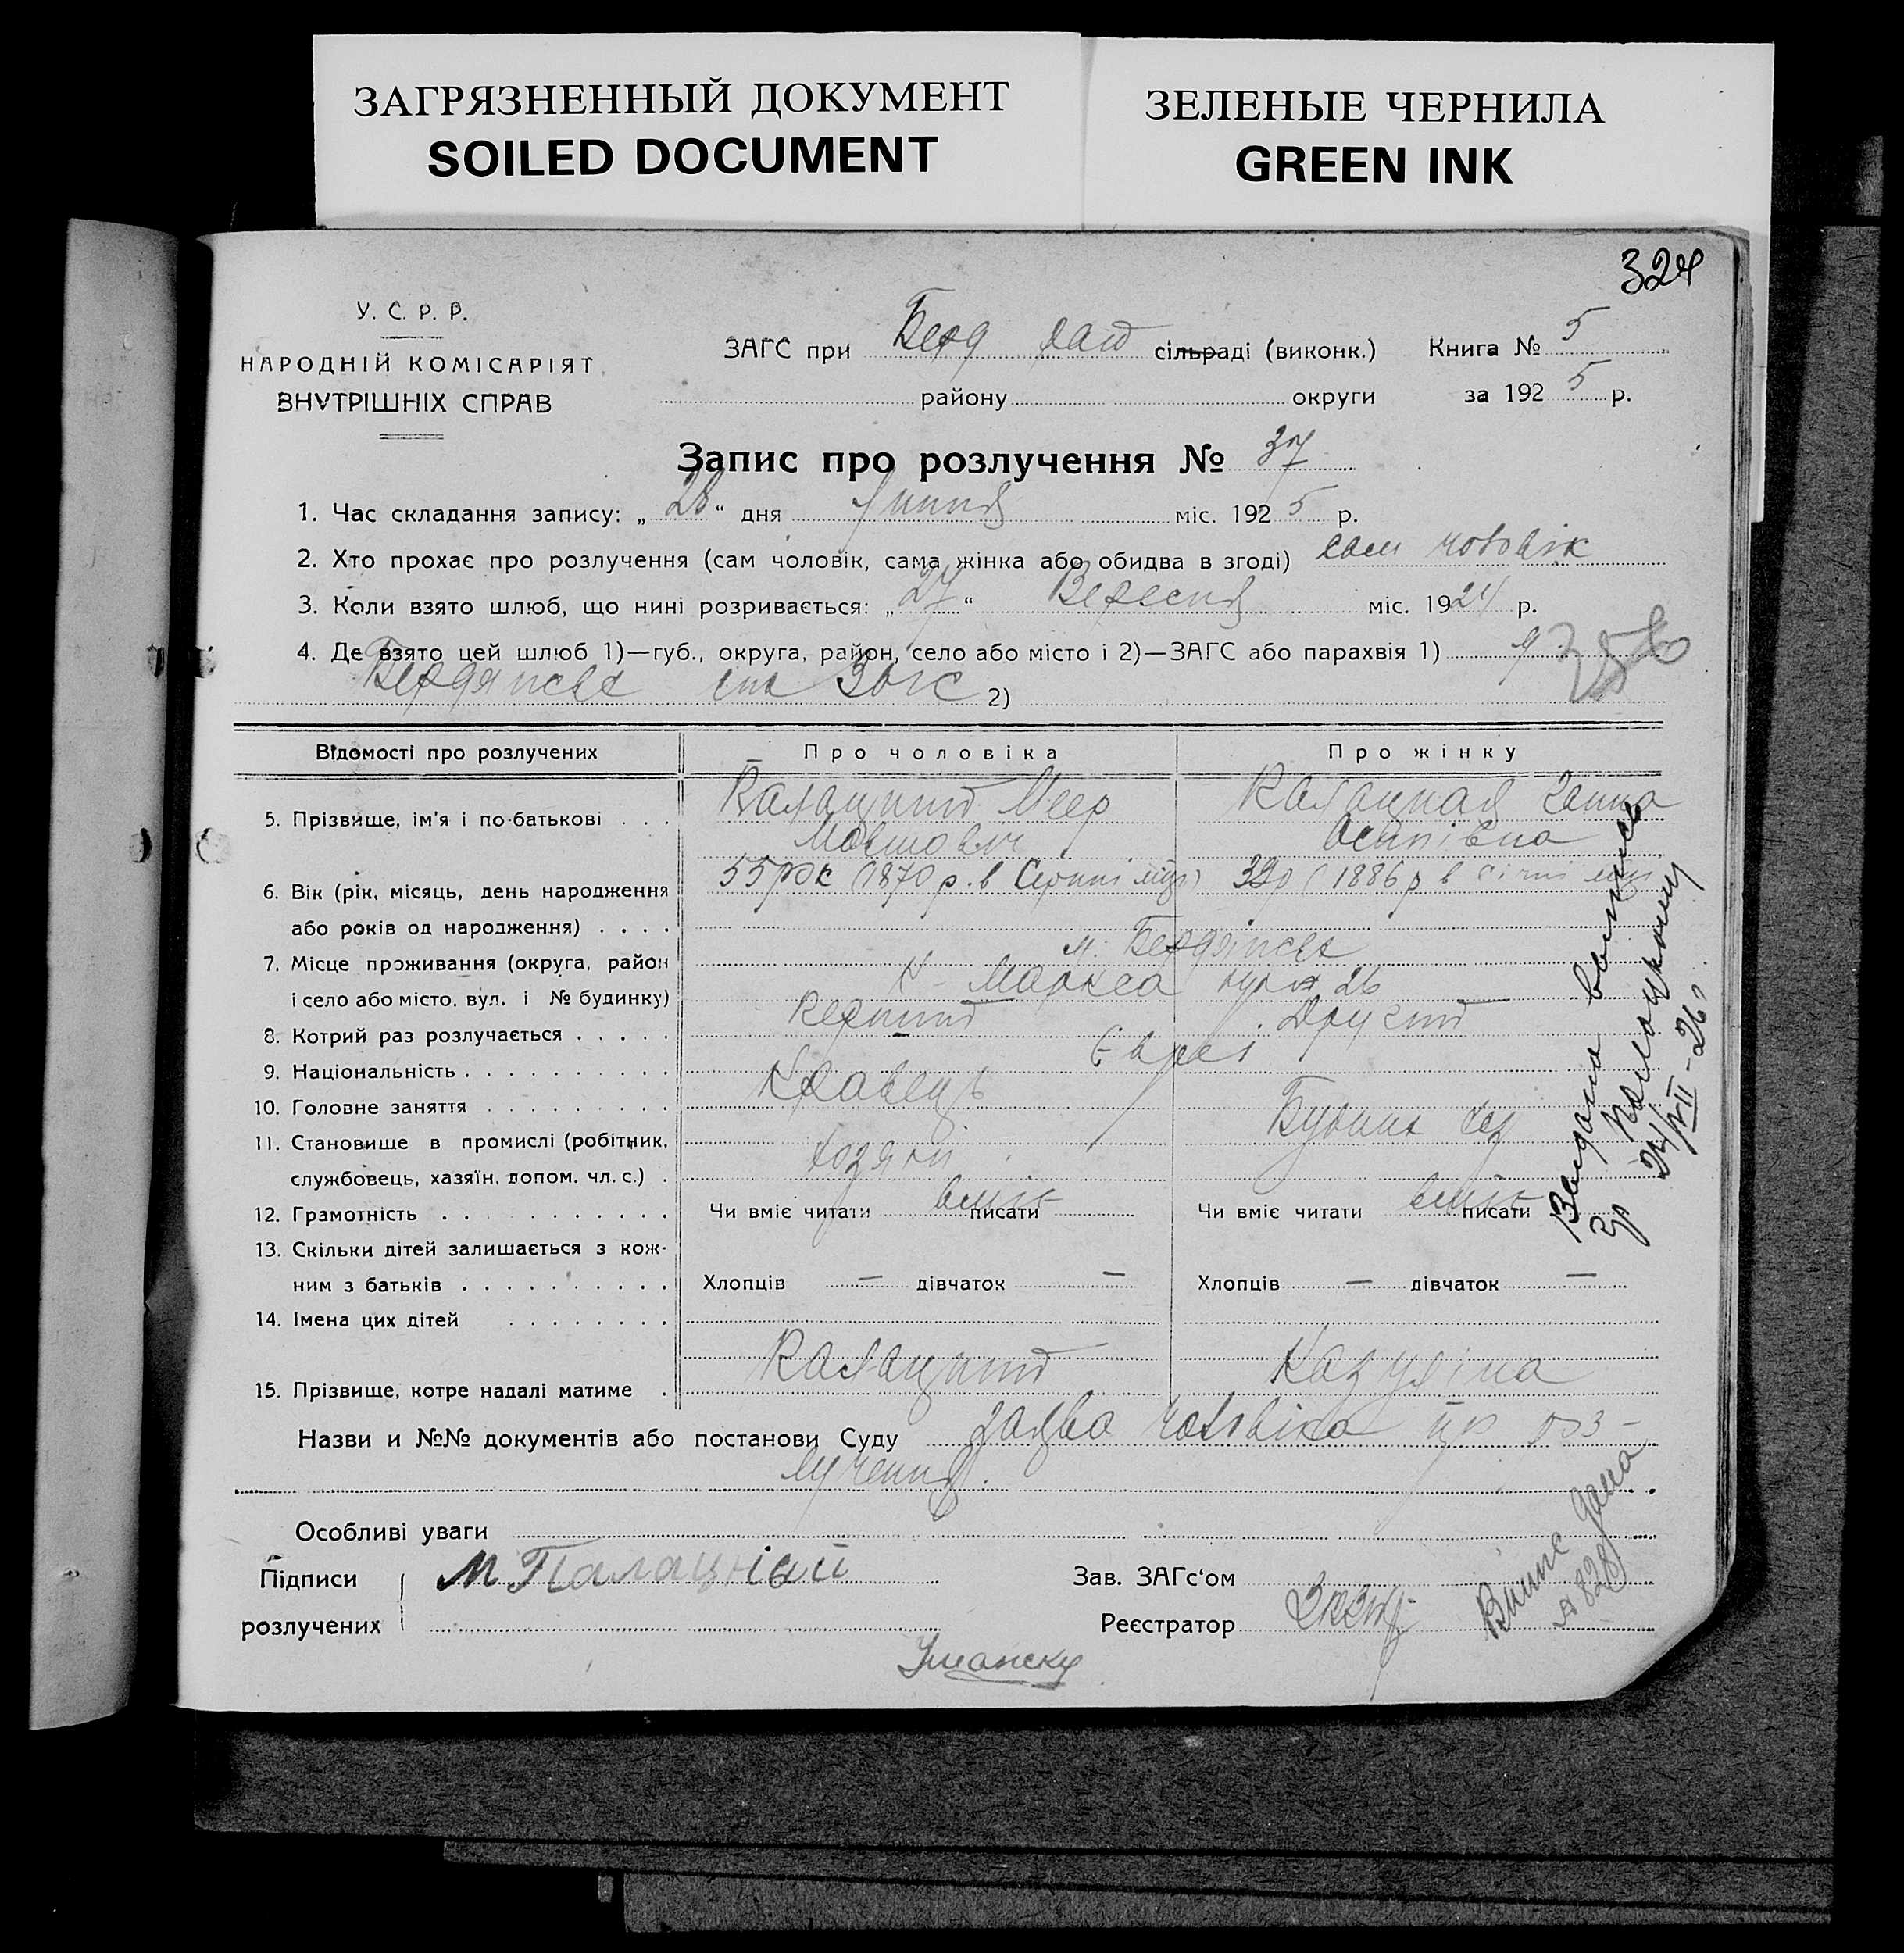 ЗАГРЯЗНЕННЫЙ ДОКУМЕНТ
SOILED DOCUMENT
ЗЕЛЕНЫЕ ЧЕРНИЛА
GREEN INK
324
У. С. Р. Р.
НАРОДНІЙ КОМІСАРІЯТ
ВНУТРІШНІХ СПРАВ
ЗАГС при Берд сільраді (виконк.) Книга № 5
району округи за 192 5 р.
Запис про розлучення № 37
1. Час складання запису: „ 28 “ дня Липня міс. 192 5 р.
2. Хто прохає про розлучення (сам чоловік, сама жінка або обидва в згоді) сам чоловік
3. Коли взято шлюб, що нині розривається: „ 27 “ Вересня міс. 1924 р.
4. Де взято цей шлюб 1)—губ., округа, район, село або місто і 2)—ЗАГС або парахвія 1)
Бердянське Загс 2)
Відомості про розлучених Про чоловіка Про жінку
5. Прізвище, ім'я і по-батькові . . . Палацний Меер Мовшович Палацная Ганна Осипівна
6. Вік (рік, місяць, день народження 55 рок (1870 р. в Серпні міц) 1886 р в січні міц
або років од народження) . . . .
7. Місце проживання (округа, район м. Бердянське
і село або місто, вул. і № будинку) К-Маркса 26
8. Котрий раз розлучається . . . . . Перший Другий
9. Національність . . . . . . . . . . Євреї
10. Головне заняття . . . . . . . . . Кравець
11. Становище в промислі (робітник,
службовець, хазяїн, допом. чл. с.) .
12. Грамотність . . . . . . . . . . . . Чи вміє читати вміє писати Чи вміє читати вміє писати
13. Скільки дітей залишається з кож-
ним з батьків . . . . . . . . . . Хлопців — дівчаток — Хлопців — дівчаток —
14. Імена цих дітей . . . . . . . .
15. Прізвище, котре надалі матиме . Палацний Казуліна
Назви и №№ документів або постанови Суду заява чоловіка пр роз-
лучення.
Особливі уваги
Підписи М Палацний Зав. ЗАГс‘ом
розлучених Реєстратор
Видана выпись
гр Палацкому
24/VII-26
Випис дана
№ 828